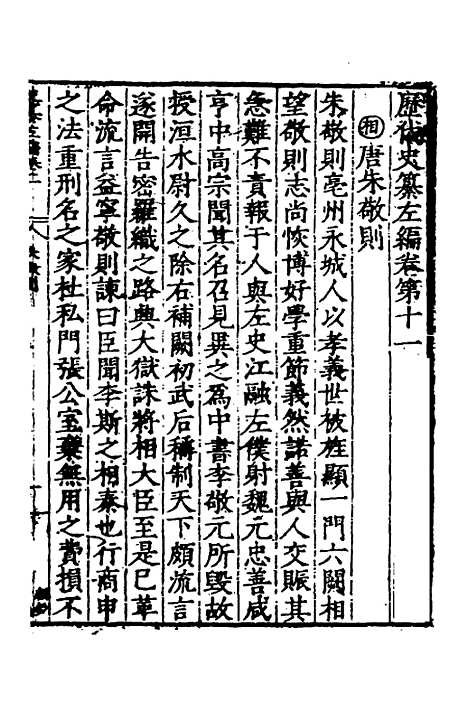 歷代史纂左編卷第十一
相 唐朱敬則
朱敬則亳州永城人以孝義世被旌顯一門六闕相
望敬則志尚恢博好學重節義然諾善與人交賑其
急難不責報于人與左史江融左僕射魏元忠善咸
亨中高宗聞其名召見異之為中書李敬元所毀故
授洹水尉久之除右補闕初武后稱制天下頗流言
遂開告密羅織之路興大獄誅將相大臣至是已革
命流言益寧敬則諫曰臣聞李斯之相秦也行商申
之法重刑名之家杜私門張公室棄無用之費損不